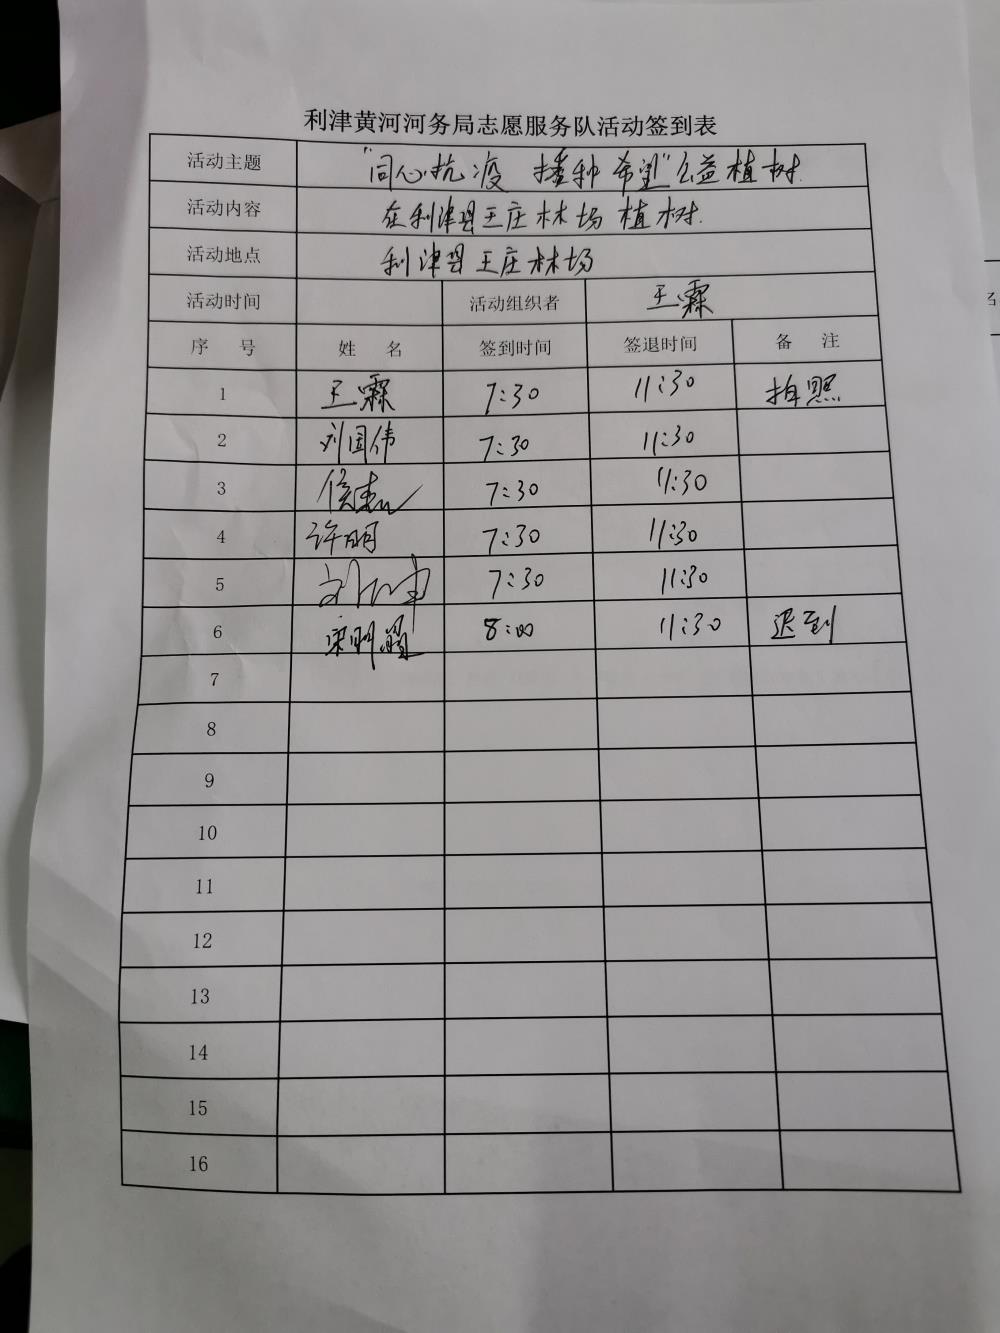 利津黄河河务局志愿服务队活动签到表
活动主题 "同心抗疫 播种希望"公益植树
活动内容 在利津县王庄林场植树.
活动地点 利津县王庄林场
活动时间 活动组织者 王霖
序号 姓名 签到时间 签退时间 备注
1 王霖 7:30 11:30 拍照
2 刘国伟 7:30 11:30
3 7:30 11:30
4 许明 7:30 11:30
5 7:30 11:30
6 8:00 11:30 迟到
7
8
9
10
11
12
13
14
15
16
名